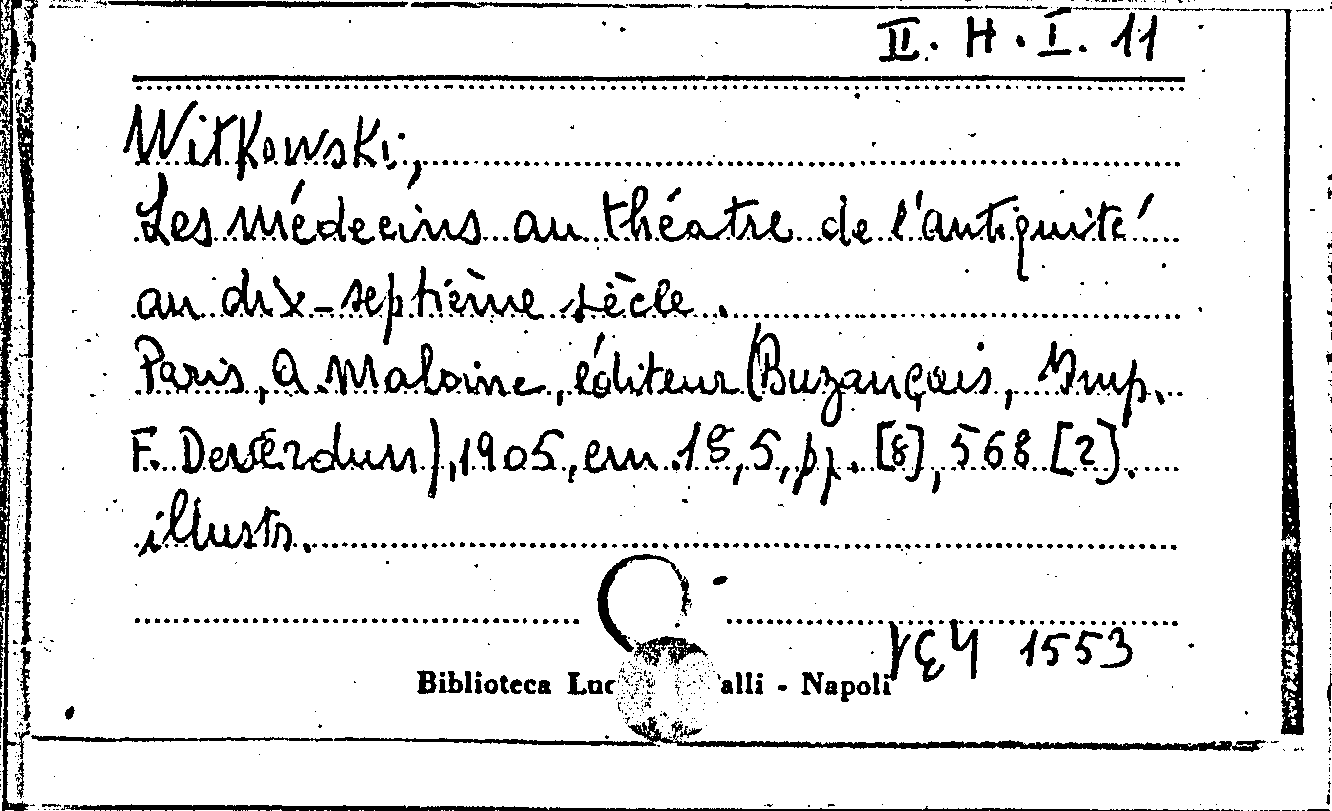 II. H. I. 11
Witkowski,
Les médecins au théatre de l'antiquité
au dix-septième sècle.
Paris, A. Maloine, éditeur (Buzançais, Imp.
F. Deverdun), 1905, cm. 18,5, pp. [8], 568 [2].
illustr.
1553
Biblioteca Luc alli - Napoli